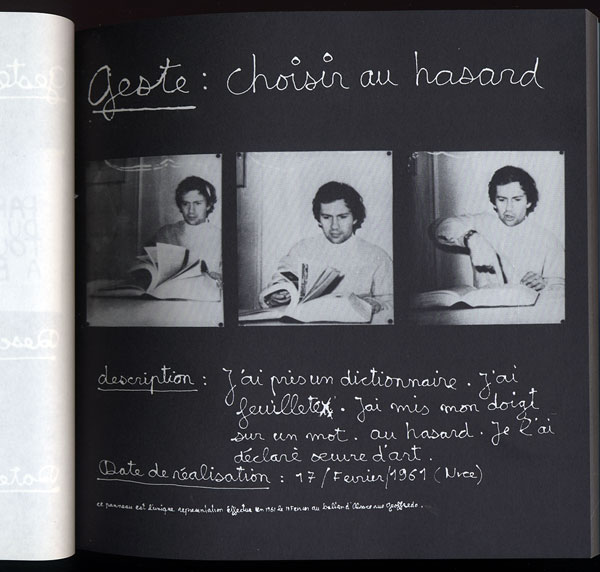 Geste : choisir au hasard
description : J'ai pris un dictionnaire. J'ai
feuilleté. J'ai mis mon doigt
sur un mot. au hasard. Je l'ai
déclaré œuvre d'art.
Date de réalisation : 17/Fevrier/1961 (Nice)
ce panneau est l'unique representation effectué en 1961 le 17 Fev au